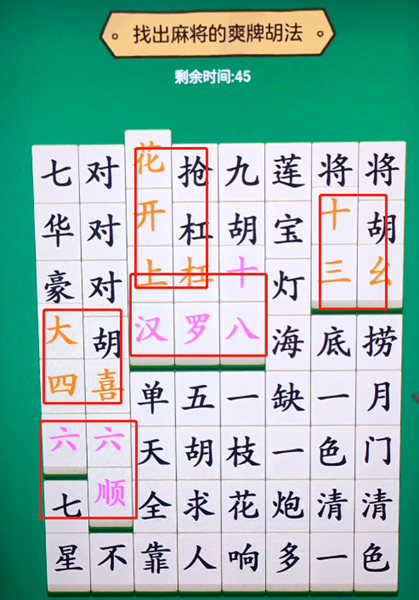 找出麻将的爽牌胡法
剩余时间:45
七对花抢九莲将将
华对开杠胡宝十胡
豪对上杠十灯三幺
大胡汉罗八海底捞
四喜单五一缺一月
六六天胡枝一色门
七顺全求花炮清清
星不靠人响多一色